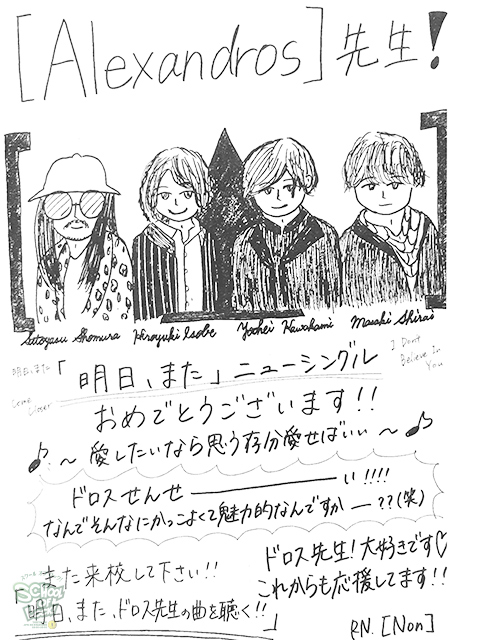 [Alexandros]先生!
Satoyasu Shomura Hiroyuki Isobe Yoohei Kawakami Masaki Shirai
明日、また
「明日、また」ニューシングル
I Don't
Believe In
You
Come
Closer
おめでとうございます!!
♪〜愛したいなら思う存分愛せばいい〜♪
ドロスせんせ―――――い!!!!
なんでそんなにかっこよくて魅力的なんですかー??(笑)
また来校して下さい!!
明日、また、ドロス先生の曲を聴く!!」
ドロス先生!大好きです♡
これからも応援してます!!
RN.[Non]
SCHOOL